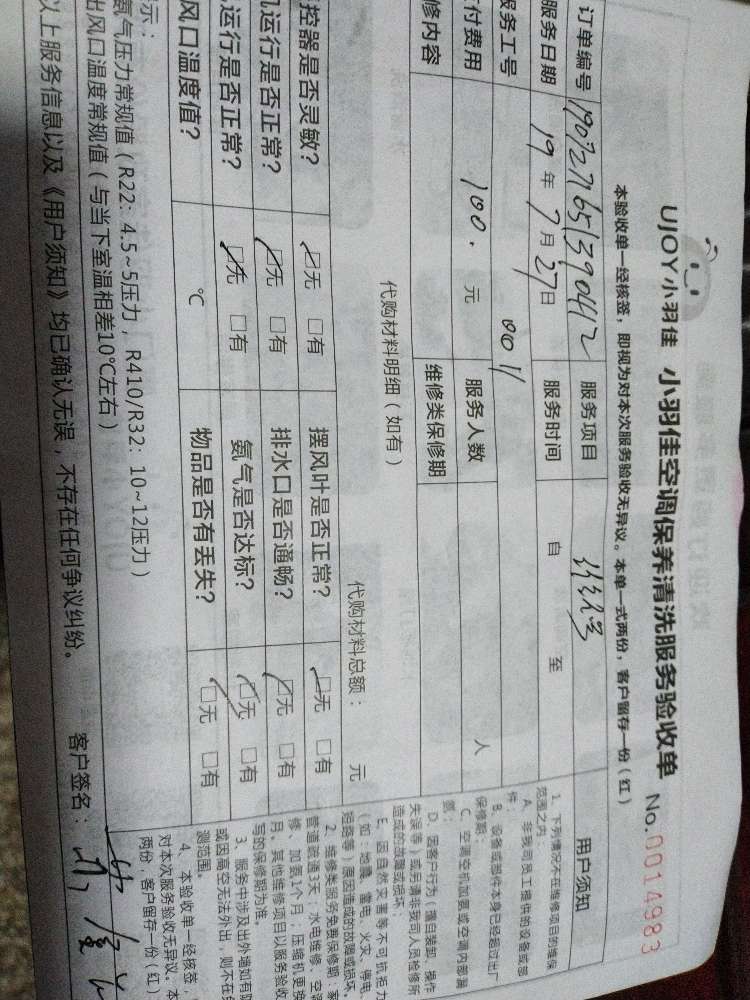 UJOY小羽佳 小羽佳空调保养清洗服务验收单 No.0014983
本验收单一经核签，即视为对本次服务验收无异议。本单一式两份，客户留存一份（红）
订单编号 服务项目
服务日期 19 年 7 月 27 日 服务时间 自 至
服务工号 0011
付费用 100. 元 服务人数 人
修内容 维修类保修期
代购材料明细（如有）
代购材料总额： 元
控器是否灵敏? 无 有 摆风叶是否正常? 无 有
运行是否正常? 无 有 排水口是否通畅? 无 有
运行是否正常? 无 有 氨气是否达标? 无 有
风口温度值? ℃ 物品是否有丢失? 无 有
示：
氨气压力常规值（R22：4.5~5压力，R410/R32：10~12压力）
出风口温度常规值（与当下室温相差10℃左右）
以上服务信息以及《用户须知》均已确认无误，不存在任何争议纠纷。 客户签名：
用户须知
1、下列情况不在维修项目的维保
范围之内：
A、非我司员工提供的设备或部
件；
B、设备或部件本身已经超过出厂
保修期；
C、空调空机加氨或空调内部漏
氨；
D、因客户行为（擅自装卸、操作
失误等）或另请非我司人员检修所
造成的故障或损坏；
E、因自然灾害等不可抗拒力
（如：地震、雷电、火灾、停电、
短路等）原因造成的故障或损坏。
2、维修类服务免费保修期：
管道疏通3天；水电维修、空
修、加氨1个月，压缩机更换
月，其他维修项目以服务验收
写的保修期为准。
3、服务中涉及出外墙如有
或因高空无法外出，则不在
测范围。
4、本验收单一经核签，
对本次服务验收无异议。本
两份，客户留存一份（红）